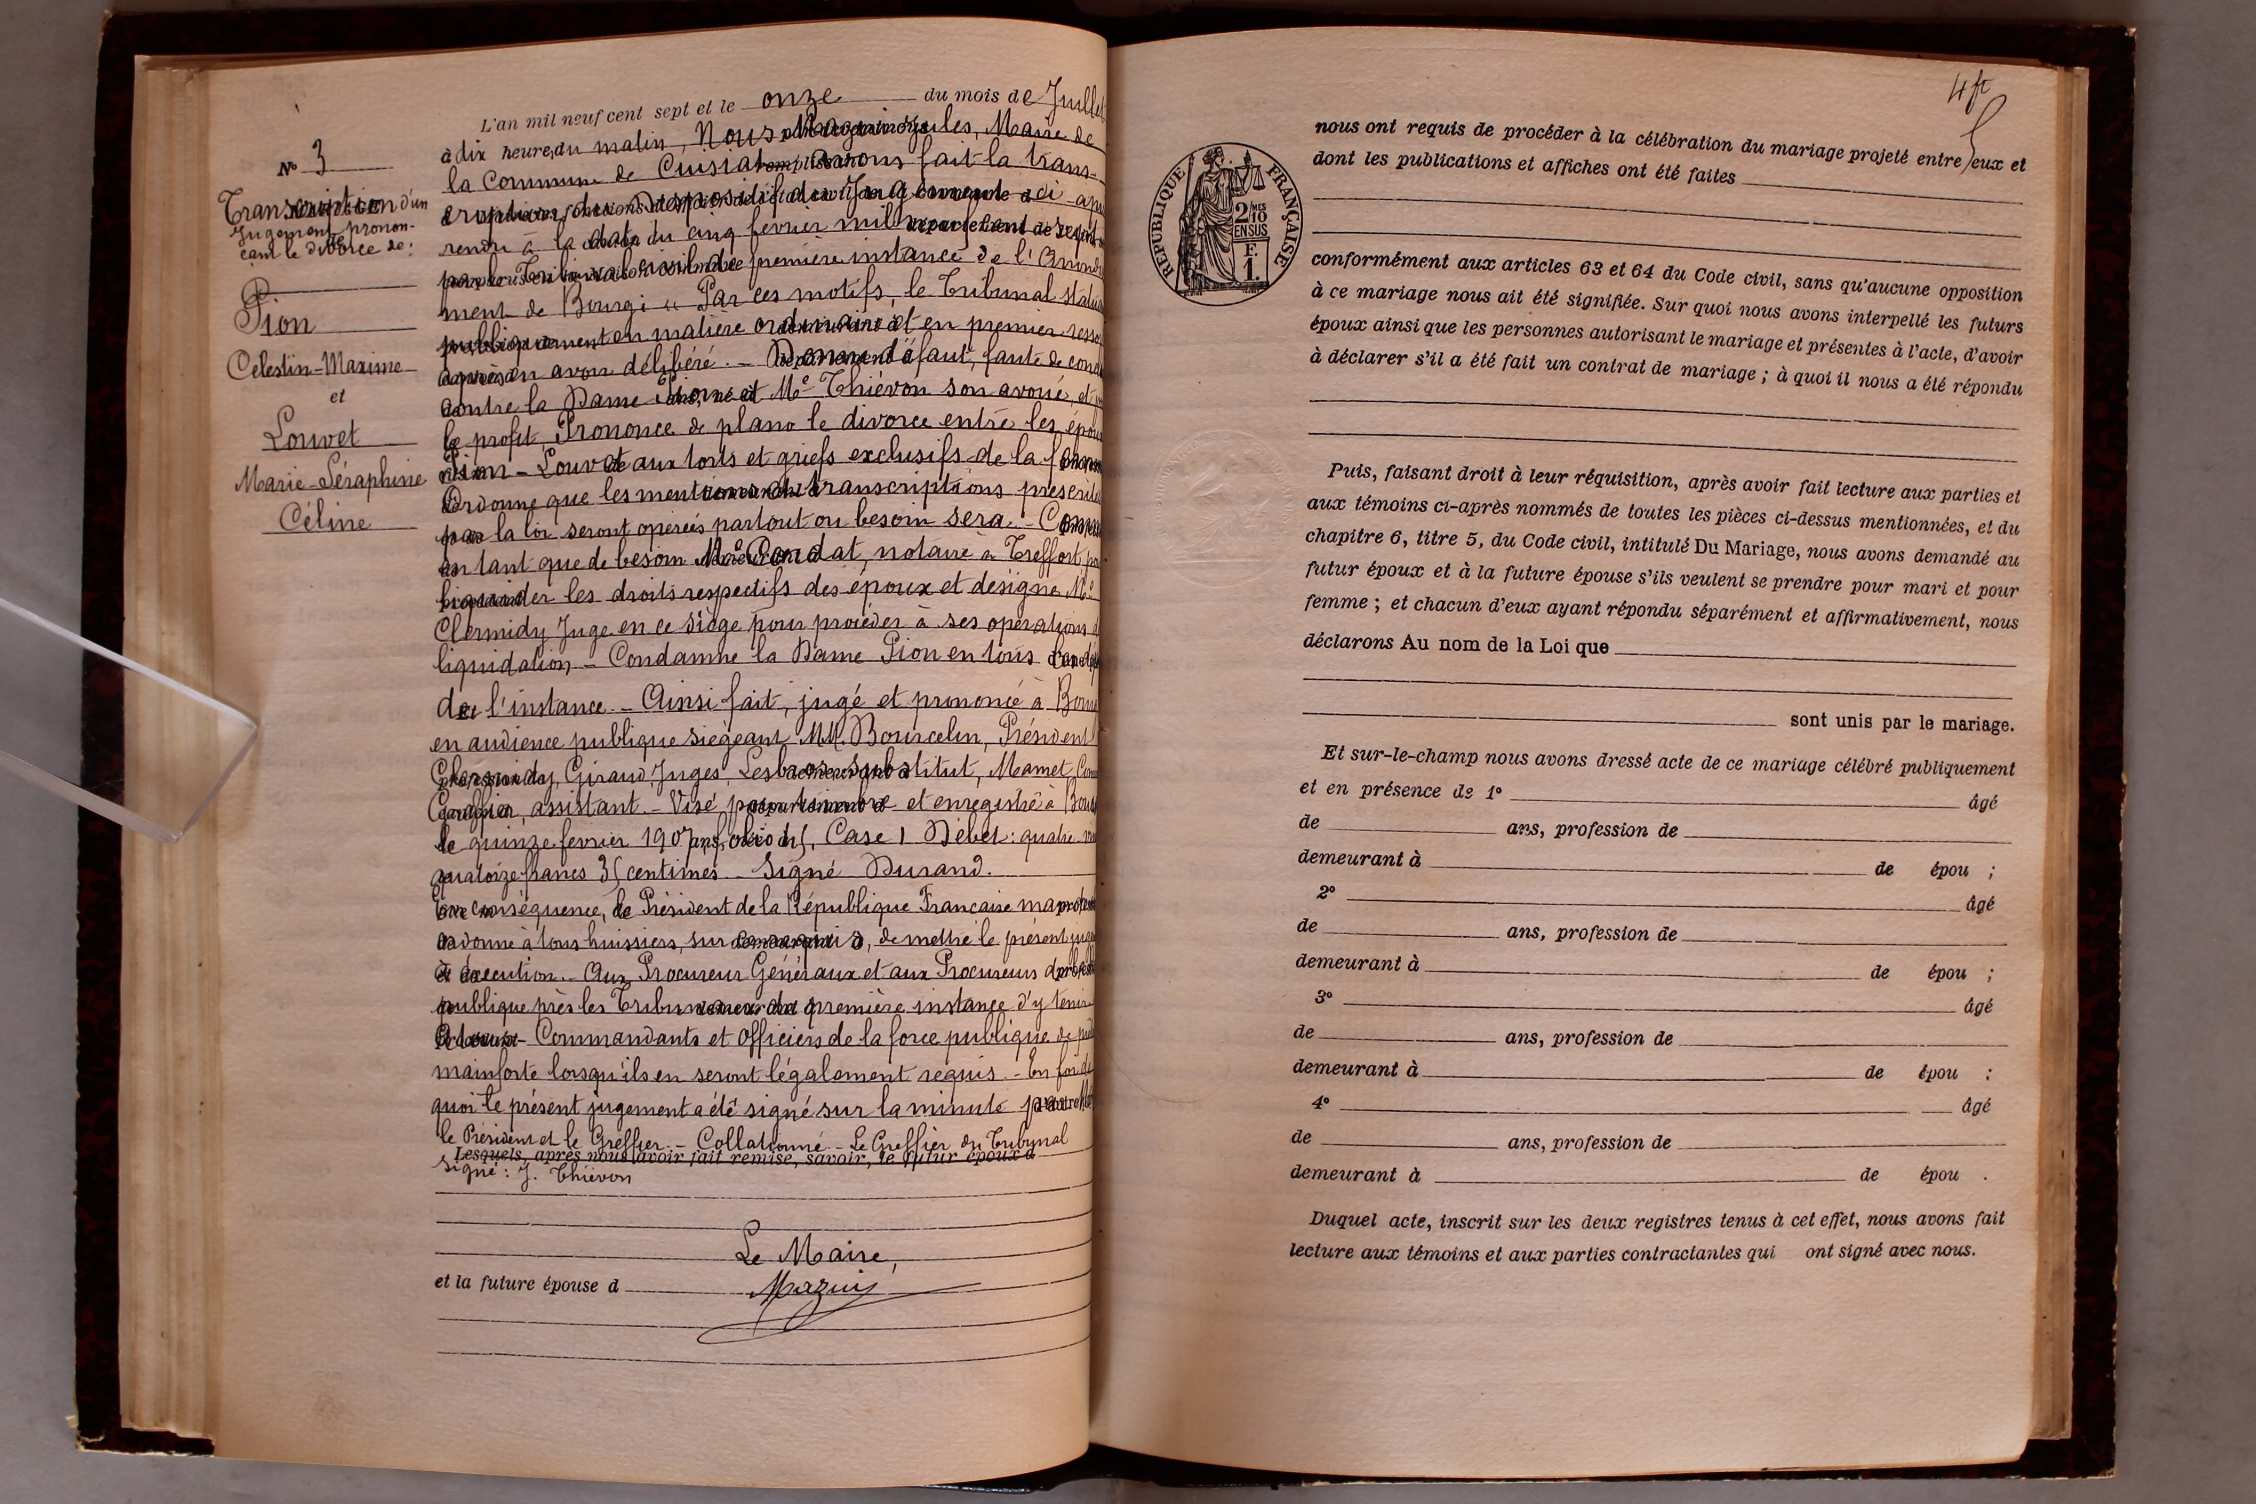 L'an mil neuf cent sept et le onze du mois de Juillet
à dix heures du matin, Nous Jules, Maire de
la Commune de Cuisiat avons fait la trans-
cription du Dispositif du Jugement ci-
rendu à la date du cinq février mil neuf cent sept
par le Tribunal civil de première instance de l'
ment de Bourg: « Par ces motifs, le Tribunal
publiquement en matière ordinaire et en premier
après en avoir délibéré. – Donne défaut, faute de
contre la Dame Pion et Me Thiévon son avoué, et
le profit, Prononce de plano le divorce entre les
Pion – Louvet aux torts et griefs exclusifs de la
Ordonne que les mentions et transcriptions
par la loi seront opérées partout ou besoin sera. –
en tant que de besoin Me Condat, notaire à Treffort
liquider les droits respectifs des époux et désigne Mr
Clermidy Juge en ce siège pour procéder à ses opérations
liquidation, – Condamne la Dame Pion en tous
de l'instance. – Ainsi fait, jugé et prononcé à
en audience publique siégeant MM. Bourcelin, Président
Clermidy, Giraud Juges, Lesbros substitut, Mamet,
Greffier, assistant – Visé pour timbre et enregistré à
le quinze février 1907, folio Case 1 Débet: quatre
quatorze francs 35 centimes – Signé Durand.
En conséquence, le Président de la République Française
ordonne à tous huissiers, sur ce requis, de mettre le présent
à exécution. – Aux Procureurs Généraux et aux Procureurs
publique près les Tribunaux de première instance d'y tenir
Commandants et Officiers de la force publique de
mainforte lorsqu'ils en seront légalement requis. – En foi de
quoi le présent jugement a été signé sur la minute par
le Président et le Greffier. – Collationné – Le Greffier du Tribunal
Lesquels, après nous avoir fait remise, savoir, le futur époux d
Signé: J. Thiévon
Le Maire,
et la future épouse d
Mazuy
N° 3
Transcription d'un
Jugement pronon-
çant le divorce de:
Pion
Célestin-Maxime
et
Louvet
Marie-Séraphine
Céline
RÉPUBLIQUE FRANÇAISE
2/10 MES
EN SUS
F.
1.
nous ont requis de procéder à la célébration du mariage projeté entre eux et
dont les publications et affiches ont été faites
conformément aux articles 63 et 64 du Code civil, sans qu'aucune opposition
à ce mariage nous ait été signifiée. Sur quoi nous avons interpellé les futurs
époux ainsi que les personnes autorisant le mariage et présentes à l'acte, d'avoir
à déclarer s'il a été fait un contrat de mariage ; à quoi il nous a été répondu
Puis, faisant droit à leur réquisition, après avoir fait lecture aux parties et
aux témoins ci-après nommés de toutes les pièces ci-dessus mentionnées, et du
chapitre 6, titre 5, du Code civil, intitulé Du Mariage, nous avons demandé au
futur époux et à la future épouse s'ils veulent se prendre pour mari et pour
femme ; et chacun d'eux ayant répondu séparément et affirmativement, nous
déclarons Au nom de la Loi que
sont unis par le mariage.
Et sur-le-champ nous avons dressé acte de ce mariage célébré publiquement
et en présence de 1° âgé
de ans, profession de
demeurant à de épou ;
2° âgé
de ans, profession de
demeurant à de épou ;
3° âgé
de ans, profession de
demeurant à de épou :
4° âgé
de ans, profession de
demeurant à de épou .
Duquel acte, inscrit sur les deux registres tenus à cet effet, nous avons fait
lecture aux témoins et aux parties contractantes qui ont signé avec nous.